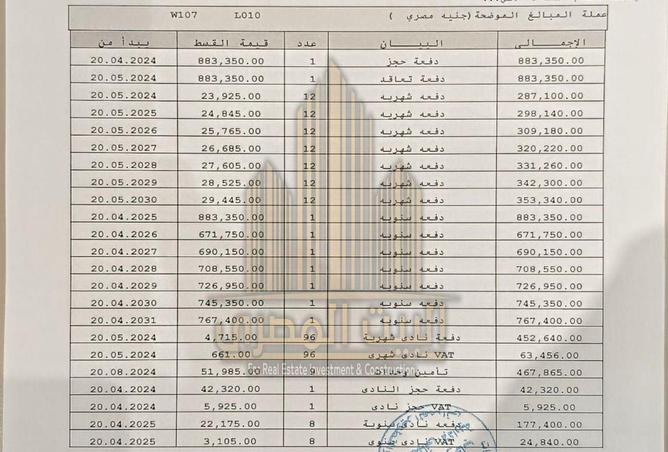 عملة المبالغ الموضحة(جنيه مصري ) L010 W107
الإجمالى البيان عدد قيمة القسط يبدأ من
883,350.00 دفعة حجز 1 883,350.00 20.04.2024
883,350.00 دفعة تعاقد 1 883,350.00 20.05.2024
287,100.00 دفعه شهريه 12 23,925.00 20.05.2024
298,140.00 دفعه شهريه 12 24,845.00 20.05.2025
309,180.00 دفعه شهريه 12 25,765.00 20.05.2026
320,220.00 دفعه شهريه 12 26,685.00 20.05.2027
331,260.00 دفعه شهريه 12 27,605.00 20.05.2028
342,300.00 دفعه شهريه 12 28,525.00 20.05.2029
353,340.00 دفعه شهريه 12 29,445.00 20.05.2030
883,350.00 دفعه سنويه 1 883,350.00 20.04.2025
671,750.00 دفعه سنويه 1 671,750.00 20.04.2026
690,150.00 دفعه سنويه 1 690,150.00 20.04.2027
708,550.00 دفعه سنويه 1 708,550.00 20.04.2028
726,950.00 دفعه سنويه 1 726,950.00 20.04.2029
745,350.00 دفعه سنويه 1 745,350.00 20.04.2030
767,400.00 دفعه سنويه 1 767,400.00 20.04.2031
452,640.00 دفعة نادى شهرية 96 4,715.00 20.05.2024
63,456.00 VAT نادى شهرى 96 661.00 20.05.2024
467,865.00 تأمين 9 51,985.00 20.08.2024
42,320.00 دفعة حجز النادى 1 42,320.00 20.04.2024
5,925.00 VAT حجز نادى 1 5,925.00 20.04.2024
177,400.00 دفعه نادى سنوية 8 22,175.00 20.04.2025
24,840.00 VAT نادى سنوى 8 3,105.00 20.04.2025
البيت المصري
Real Estate Investment & Construction